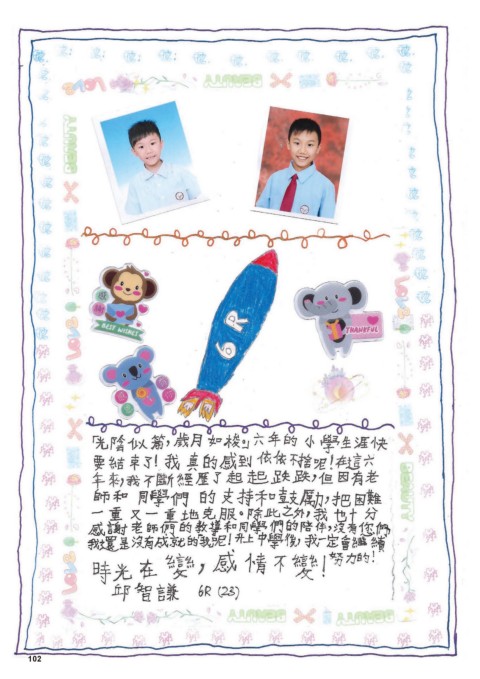 BEST WISHES
6R
THANKFUL
「光陰似箭,歲月如梭。」六年的小學生涯快
要結束了!我真的感到依依不捨呢!在這六
年來,我不斷經歷了起起跌跌,但因有老
師和同學們的支持和鼓勵,把困難
一重又一重地克服。除此之外,我也十分
感謝老師們的教導和同學們的陪伴,沒有您們
我還是沒有成就的我呢!升上中學後,我一定會繼續
努力的!
時光在變,感情不變!
邱智謙 6R (23)
102